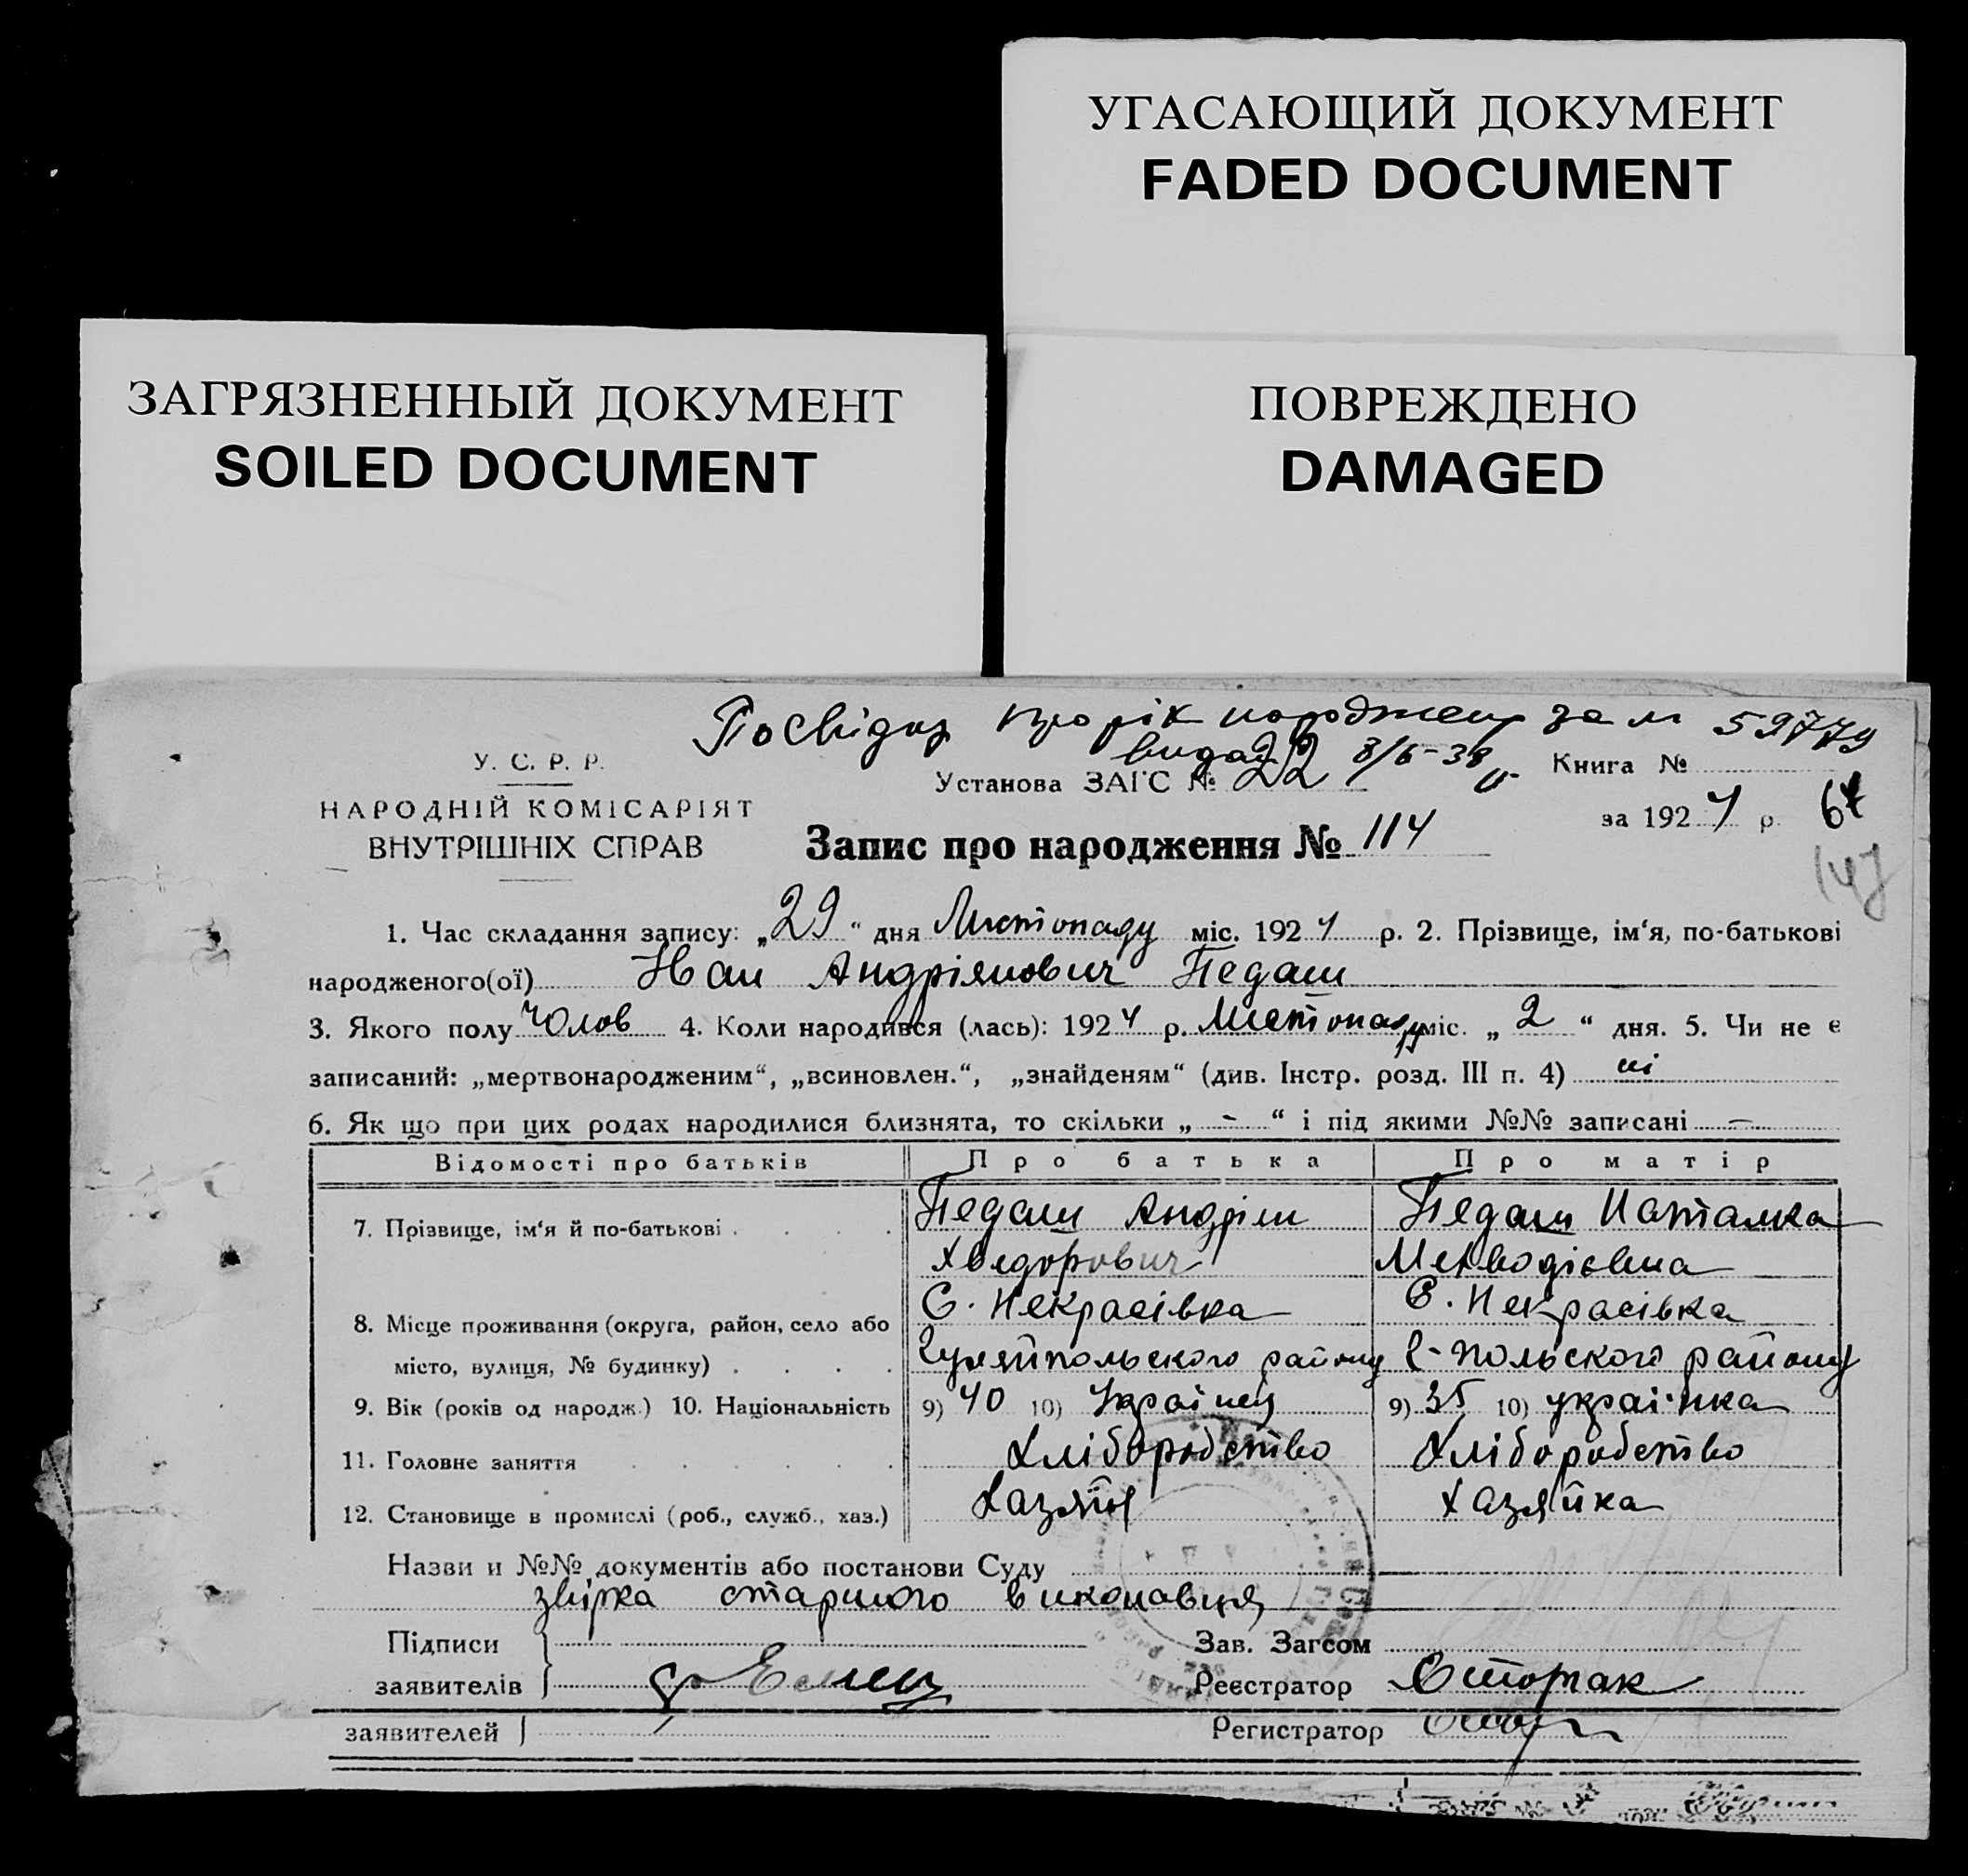 УГАСАЮЩИЙ ДОКУМЕНТ
FADED DOCUMENT
ЗАГРЯЗНЕННЫЙ ДОКУМЕНТ
SOILED DOCUMENT
ПОВРЕЖДЕНО
DAMAGED
про рік за № 59779
У. С. Р. Р.
НАРОДНІЙ КОМІСАРІЯТ
ВНУТРІШНІХ СПРАВ
8/6-38
Установа ЗАГС № 22
Книга №
за 1924 р.
Запис про народження № 114
1. Час складання запису: „29“ дня Листопаду міс. 1924 р. 2. Прізвище, ім‘я, по-батькові
народженого(ої) Андріянович Педаш
3. Якого полу Чолов 4. Коли народився (лась): 1924 р. Листопаду міс. „2“ дня. 5. Чи не є
записаний: „мертвонародженим“, „всиновлен.“, „знайденям“ (див. Інстр. розд. III п. 4) ні
6. Як що при цих родах народилися близнята, то скільки „ - “ і під якими №№ записані -
Відомості про батьків Про батька Про матір
7. Прізвище, ім‘я й по-батькові Педаш Андрій Педаш Наталка
Хведорович Мехводієвна
С. Некрасівка С. Некрасівка
8. Місце проживання (округа, район, село або
місто, вулиця, № будинку) Гуляйпольського району Г-польского району
9. Вік (років од народж.) 10. Національність 9) 40 10) Українец 9) 35 10) українка
11. Головне заняття Хліборобство Хліборобство
12. Становище в промислі (роб., служб., хаз.) Хазяїн хазяйка
Назви и №№ документів або постанови Суду
звірка старшого виконавця
Підписи
заявителів
Зав. Загсом
Реєстратор
заявителей
Регистратор